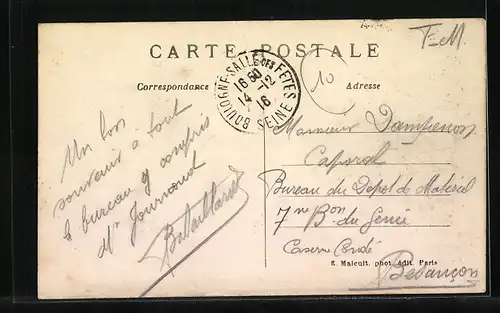 F.M.
CARTE POSTALE
Correspondance
Adresse
BOULOGNE-SALLE DES FETES
16 50
14 - 12
16
SEINE
10
Un bon
souvenir à tout
le bureau y compris
Mr Journoud
Bataillard
Monsieur
Caporal
Bureau du Dépot de Matériel
7me Bon du Génie
Caserne Condé
E. Malcuit, phot. édit. Paris
Besançon